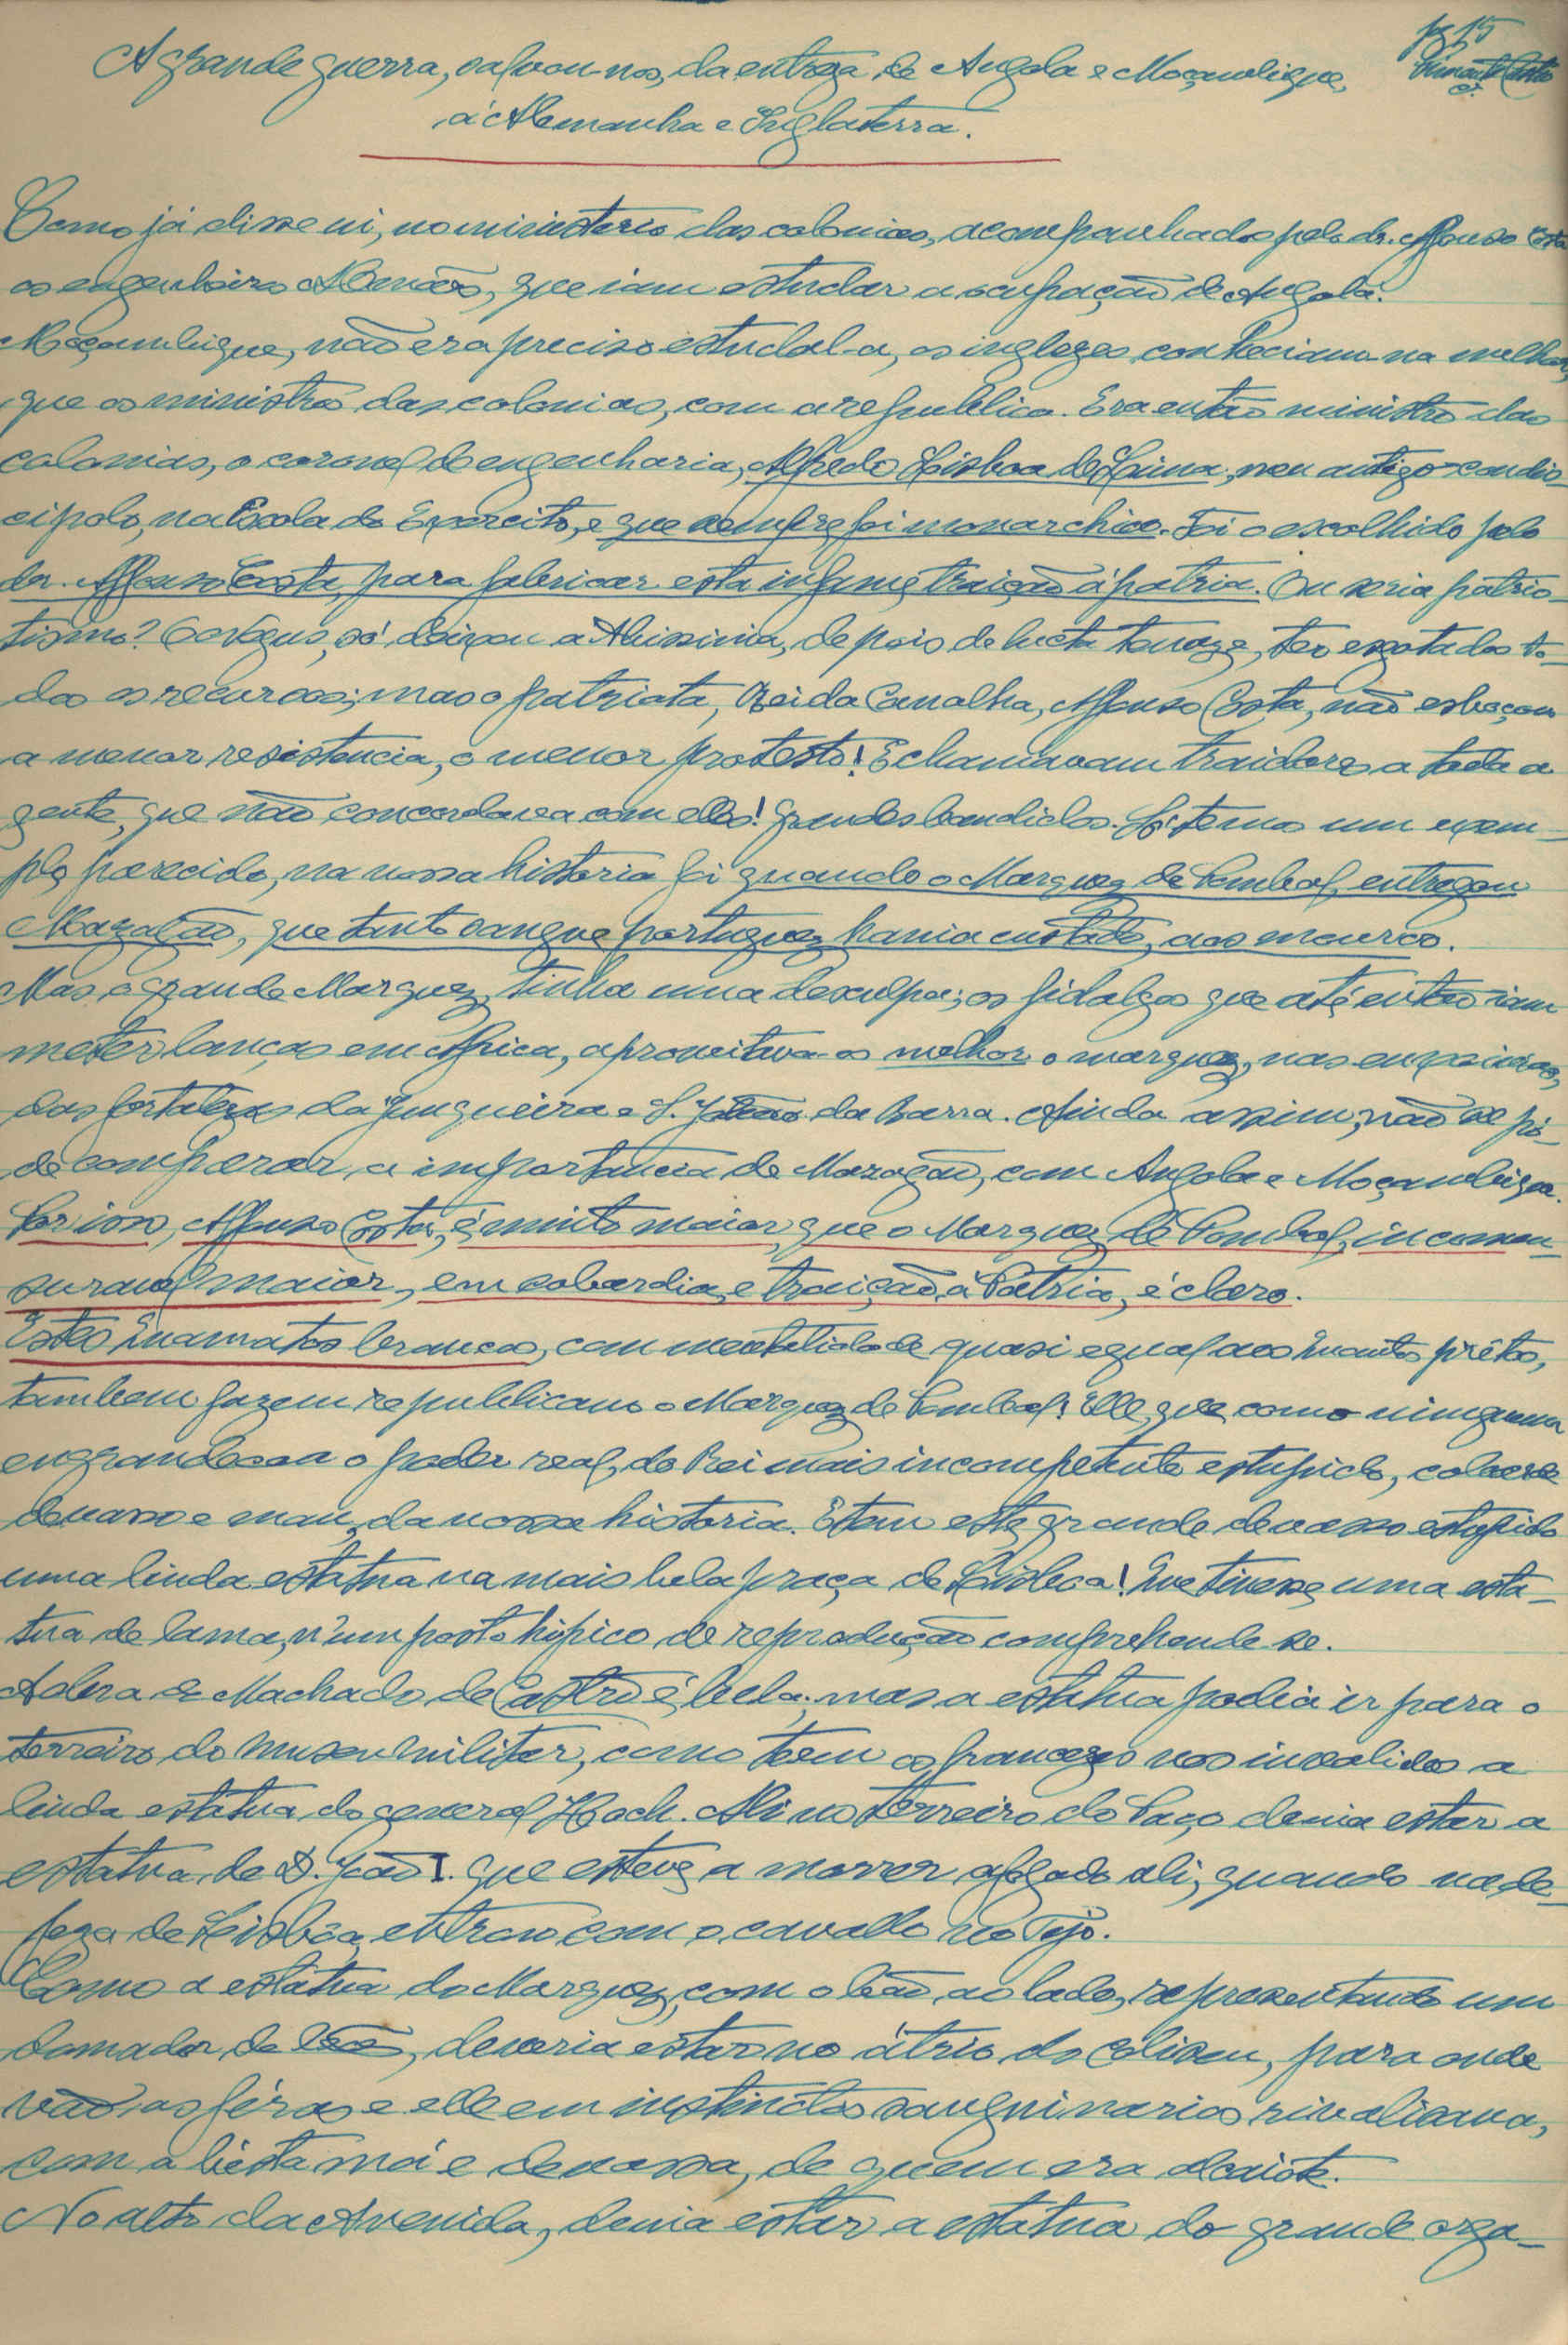 pg 15
A grande guerra, salvou-nos, da entrega de Angola e Moçambique,
á Alemanha e Inglaterra.
Como já disse vi, no ministerio das colonias, acompanhados pelo dr. Affonso Costa
os engenheiros Alemães, que iam estudar a ocupação de Angola.
Moçambique, não era preciso estudal-a, os inglezes conheciam-na melhor,
que os ministros das colonias, com a republica. Era então ministro das
colonias, o coronel de engenharia, Alfredo Lisboa de Lima, meu antigo condis-
cipolo, na Escola do Exercito, e que sempre foi monarchico. Foi o escolhido pelo
dr. Affonso Costa, para fabricar esta infame traição á patria. Ou seria patrio-
tismo? O Negus, só deixou a Abissinia, depois de lucta tenaz e, ter exgotados to-
dos os recursos; mas o patriota, Rei da Canalha, Affonso Costa, não esboçou
a menor resistencia, o menor protesto! E chamavam traidores a toda a
gente, que não concordava com elles! Grandes bandidos. Só temos um exem-
plo parecido, na nossa historia foi quando o Marquez de Pombal, entregou
Mazagão, que tanto sangue portuguez havia custado, aos mouros.
Mas o grande Marquez, tinha uma desculpa; os fidalgos que até então iam
meter lanças em Africa, aproveitava-os melhor o marquez, nas enxovias,
das fortalezas da Junqueira e S. Julião da Barra. Ainda assim, não se pó-
de comparar a importancia de Mazagão, com Angola e Moçambique.
Por isso, Affonso Costa, é muito maior, que o Marquez de Pombal, incomen-
suravel maior, em cobardia e traição á Patria, é claro.
Estes branc­os, com mentalidade quasi egual aos prêtos,
tambem fazem republicano o Marquez de Pombal! Elle, que como ninguem
engrandeceu o poder real, do Rei mais incompetente estupido, cobarde
devasso e mau, da nossa historia. E tem este grande devasso estupido
uma linda estátua na mais bela praça de Lisboa! Que tivesse uma está-
tua de lama, n'um posto hipico de reprodução comprehende-se.
A obra de Machado de Castro é bela; mas a estátua podia ir para o
terreiro do museu militar, como teem os francezes nos invalidos a
linda estátua do general Hoch. Ali no Terreiro do Paço devia estar a
estátua, de D. João I. que esteve a morrer afogado ali, quando na de-
feza de Lisboa, entrou com o cavallo no Tejo.
Como a estátua do Marquez, com o leão, ao lado, representando um
domador de leões, deveria estar no átrio do coliseu, para onde
vão as féras e elle em instinctos sanguinarios rivalisava,
com a bésta má e devassa, de quem era alcaiote.
No alto da Avenida, devia estar a estátua do grande orga-